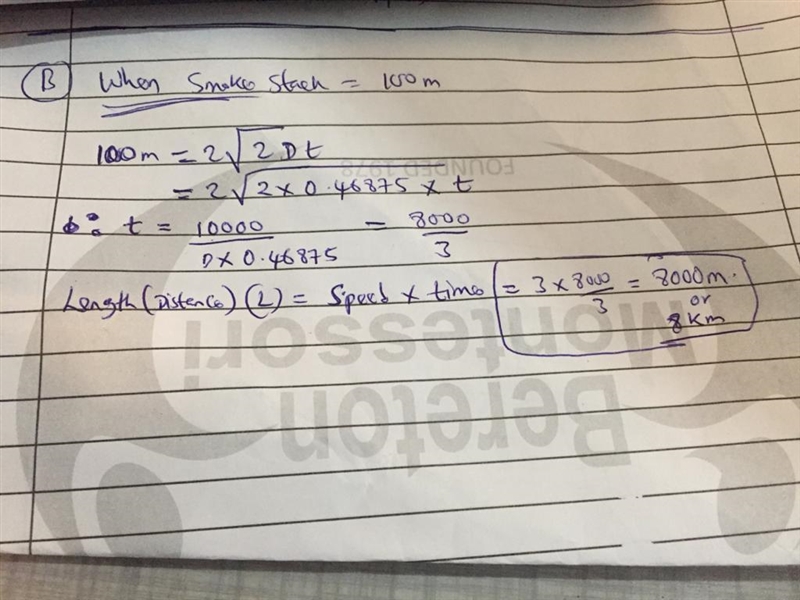 B When Smoke Stack = 100m
100m = 2√2Dt
= 2√2 × 0.46875 × t
∴ t = 10000 / D × 0.46875 = 8000 / 3
Length (Distance) (L) = Speed × time = 3 × 8000 / 3 = 8000m.
or
8 Km
FOUNDED 1978
Montessori
Bereton